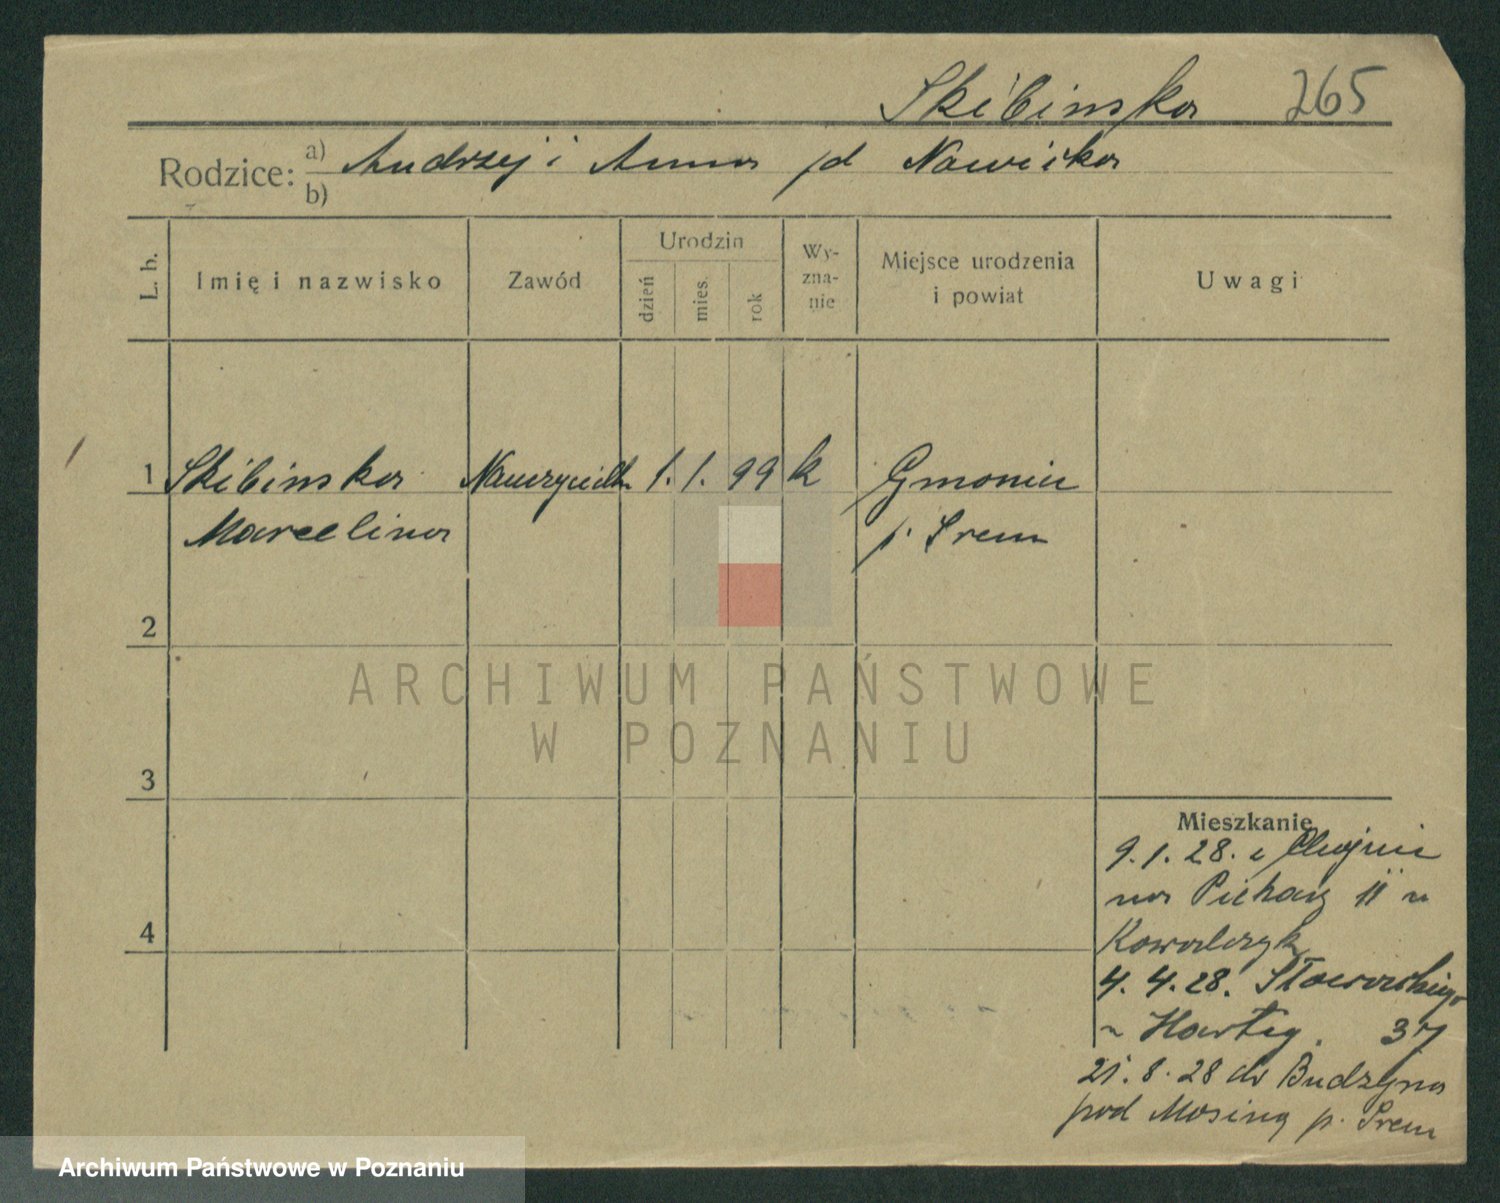 Skibinska 265
Rodzice: a) Andrzej i Anna pd Nawicka
b)
L. b.
Imię i nazwisko
Zawód
Urodzin
dzień
mies.
rok
Wy-
zna-
nie
Miejsce urodzenia
i powiat
Uwagi
1 Skibinska Nauczycielk 1. 1. 99 k
Marcelina p. Srem
2
ARCHIWUM PAŃSTWOWE
W POZNANIU
3
4
Mieszkanie
9.1.28. z
na Piekary 11 u
Kowalczyk
4. 4. 28. Słowackiego
u Hartig. 37
21. 8. 28 do Budzyna
pod Mosiną p. Srem
Archiwum Państwowe w Poznaniu